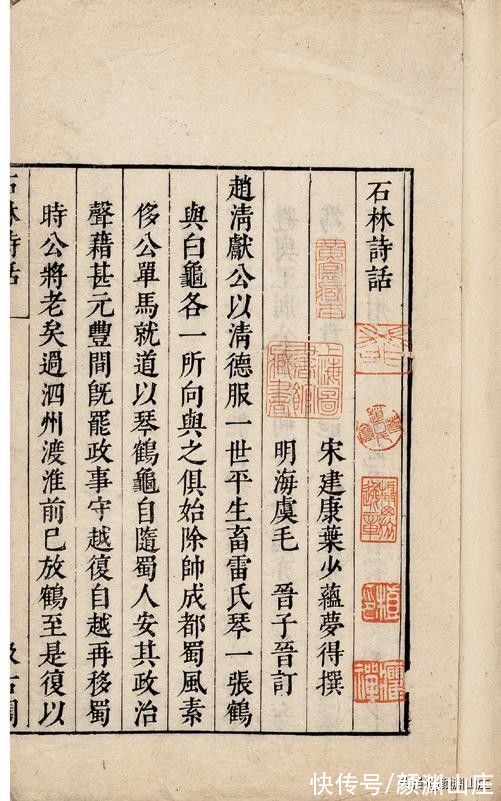 石林詩話
宋建康葉少蘊夢得撰
明海虞毛 晉子晉訂
趙清獻公以清德服一世平生畜雷氏琴一張鶴
與白龜各一所向與之俱始除帥成都蜀風素
侈公單馬就道以琴鶴龜自隨蜀人安其政治
聲藉甚元豐間旣罷政事守越復自越再移蜀
時公將老矣過泗州渡淮前已放鶴至是復以
石林詩話
上海圖書館藏書
快传号/颜渊山庄